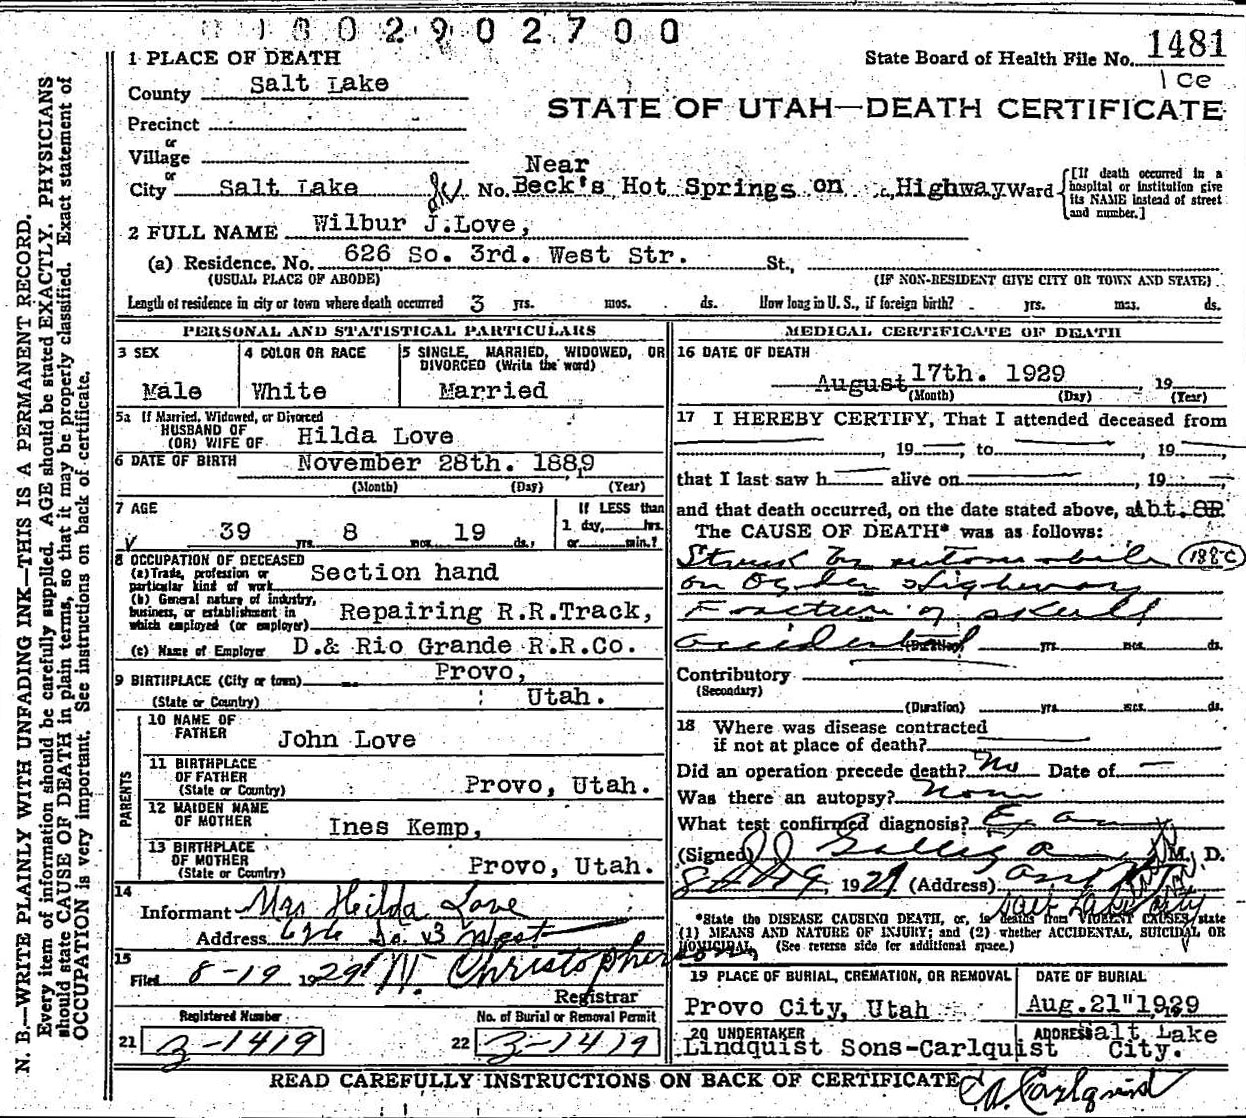 0 1 6 0 2 9 0 2 7 0 0
1 PLACE OF DEATH
State Board of Health File No. 1481
1 Ce
County Salt Lake
STATE OF UTAH—DEATH CERTIFICATE
Precinct
or
Village
or
City Salt Lake No. Near Beck's Hot Springs on Highway Ward
[If death occurred in a hospital or institution give its NAME instead of street and number.]
2 FULL NAME Wilbur J.Love,
(a) Residence. No. 626 So. 3rd. West Str. St.,
(USUAL PLACE OF ABODE) (IF NON-RESIDENT GIVE CITY OR TOWN AND STATE)
Length of residence in city or town where death occurred 3 yrs. mos. ds. How long in U. S., if foreign birth? yrs. mos. ds.
PERSONAL AND STATISTICAL PARTICULARS
3 SEX
Male
4 COLOR OR RACE
White
5 SINGLE, MARRIED, WIDOWED, OR DIVORCED (Write the word)
Married
5a If Married, Widowed, or Divorced
HUSBAND OF
(OR) WIFE OF Hilda Love
6 DATE OF BIRTH November 28th. 1889
(Month) (Day) (Year)
7 AGE
39 yrs. 8 mos. 19 ds.,
If LESS than
1 day, hrs.
or min.?
8 OCCUPATION OF DECEASED
(a) Trade, profession or
particular kind of work Section hand
(b) General nature of industry,
business, or establishment in
which employed (or employer) Repairing R.R.Track,
(c) Name of Employer D.& Rio Grande R.R.Co.
9 BIRTHPLACE (City or town) Provo,
(State or Country) Utah.
PARENTS
10 NAME OF
FATHER
John Love
11 BIRTHPLACE
OF FATHER
(State or Country) Provo, Utah.
12 MAIDEN NAME
OF MOTHER
Ines Kemp,
13 BIRTHPLACE
OF MOTHER
(State or Country) Provo, Utah.
14
Informant Mrs Hilda Love
Address 626 So 3 West
15
Filed 8-19 1929 N. Christopherson
Registrar
Registered Number No. of Burial or Removal Permit
21 3-1419 22 3-1419
MEDICAL CERTIFICATE OF DEATH
16 DATE OF DEATH
August 17th. 1929 , 19
(Month) (Day) (Year)
17 I HEREBY CERTIFY, That I attended deceased from
, 19 , to , 19 ,
that I last saw h alive on , 19 ,
and that death occurred, on the date stated above, at Abt. 8P.
The CAUSE OF DEATH* was as follows:
Struck by automobile 188c
on Ogden Highway
Fracture of skull
accidental (Duration) yrs. mos. ds.
Contributory
(Secondary)
(Duration) yrs. mos. ds.
18 Where was disease contracted
if not at place of death?
Did an operation precede death? No Date of —
Was there an autopsy? None
What test confirmed diagnosis?
(Signed) M. D.
1929 (Address) Salt Lake City
*State the DISEASE CAUSING DEATH, or, in deaths from VIOLENT CAUSES, state
(1) MEANS AND NATURE OF INJURY; and (2) whether ACCIDENTAL, SUICIDAL OR
HOMICIDAL. (See reverse side for additional space.)
19 PLACE OF BURIAL, CREMATION, OR REMOVAL
Provo City, Utah
DATE OF BURIAL
Aug.21" 1929
20 UNDERTAKER
Lindquist Sons-Carlquist
ADDRESS Salt Lake
City.
READ CAREFULLY INSTRUCTIONS ON BACK OF CERTIFICATE
N. B.—WRITE PLAINLY WITH UNFADING INK—THIS IS A PERMANENT RECORD.
Every item of information should be carefully supplied. AGE should be stated EXACTLY. PHYSICIANS
should state CAUSE OF DEATH in plain terms, so that it may be properly classified. Exact statement of
OCCUPATION is very important. See instructions on back of certificate.